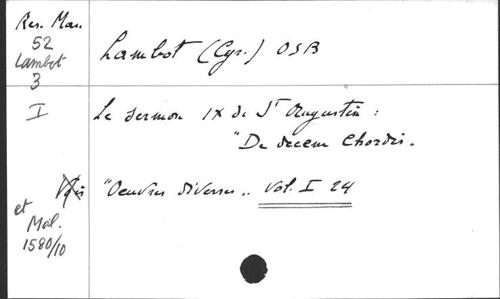 Res. Mau.
52
Lambot
3
Lambot (Cyr.) OSB
I
Le sermon IX de St Augustin :
"De decem Chordis.
Voir "Oeuvres diverses.. Vol. I 24
et
Mél.
1580/10